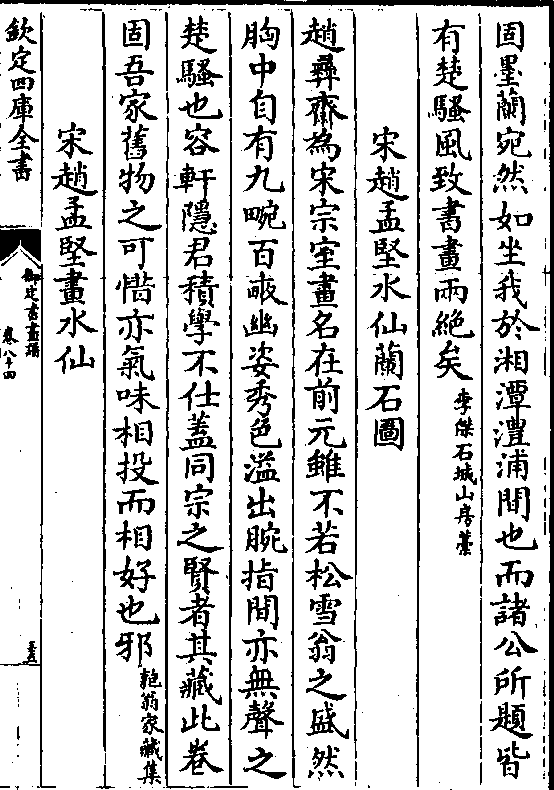 固墨蘭宛然如坐我於湘潭澧浦間也而諸公所題皆
有楚騷風致書畫兩絶矣李傑石城山房藁
宋趙孟堅水仙蘭石圖
趙彞齋為宋宗室畫名在前元雖不若松雪翁之盛然
胸中自有九畹百畝幽姿秀色溢出腕指間亦無聲之
楚騷也容軒隱君積學不仕蓋同宗之賢者其藏此卷
固吾家舊物之可惜亦氣味相投而相好也邪匏翁家藏集
宋趙孟堅畫水仙
欽定四庫全書
御定書畫譜
卷八十四